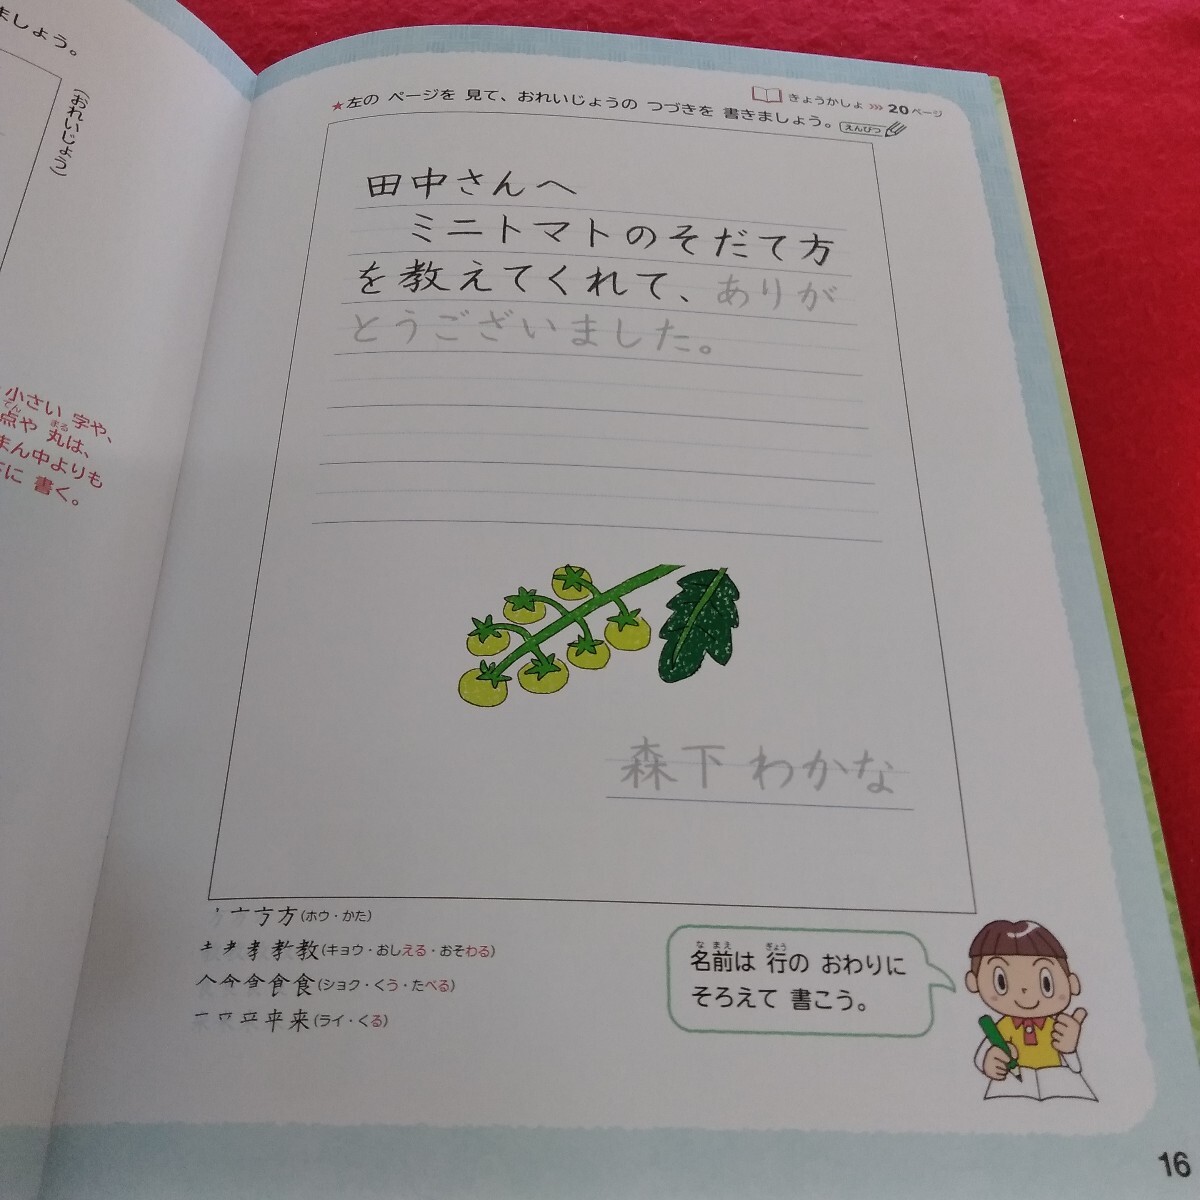 ましょう。
(おれいじょう)
小さい 字や、
点や 丸は、
てん まる
まん中よりも
に 書く。
きょうかしょ 20ページ
★左の ページを 見て、おれいじょうの つづきを 書きましょう。 えんぴつ
田中さんへ
ミニトマトのそだて方
を教えてくれて、ありが
とうございました。
森下 わかな
方(ホウ・かた)
教(キョウ・おしえる・おそわる)
食(ショク・くう・たべる)
来(ライ・くる)
なまえ ぎょう
名前は 行の おわりに
そろえて 書こう。
16